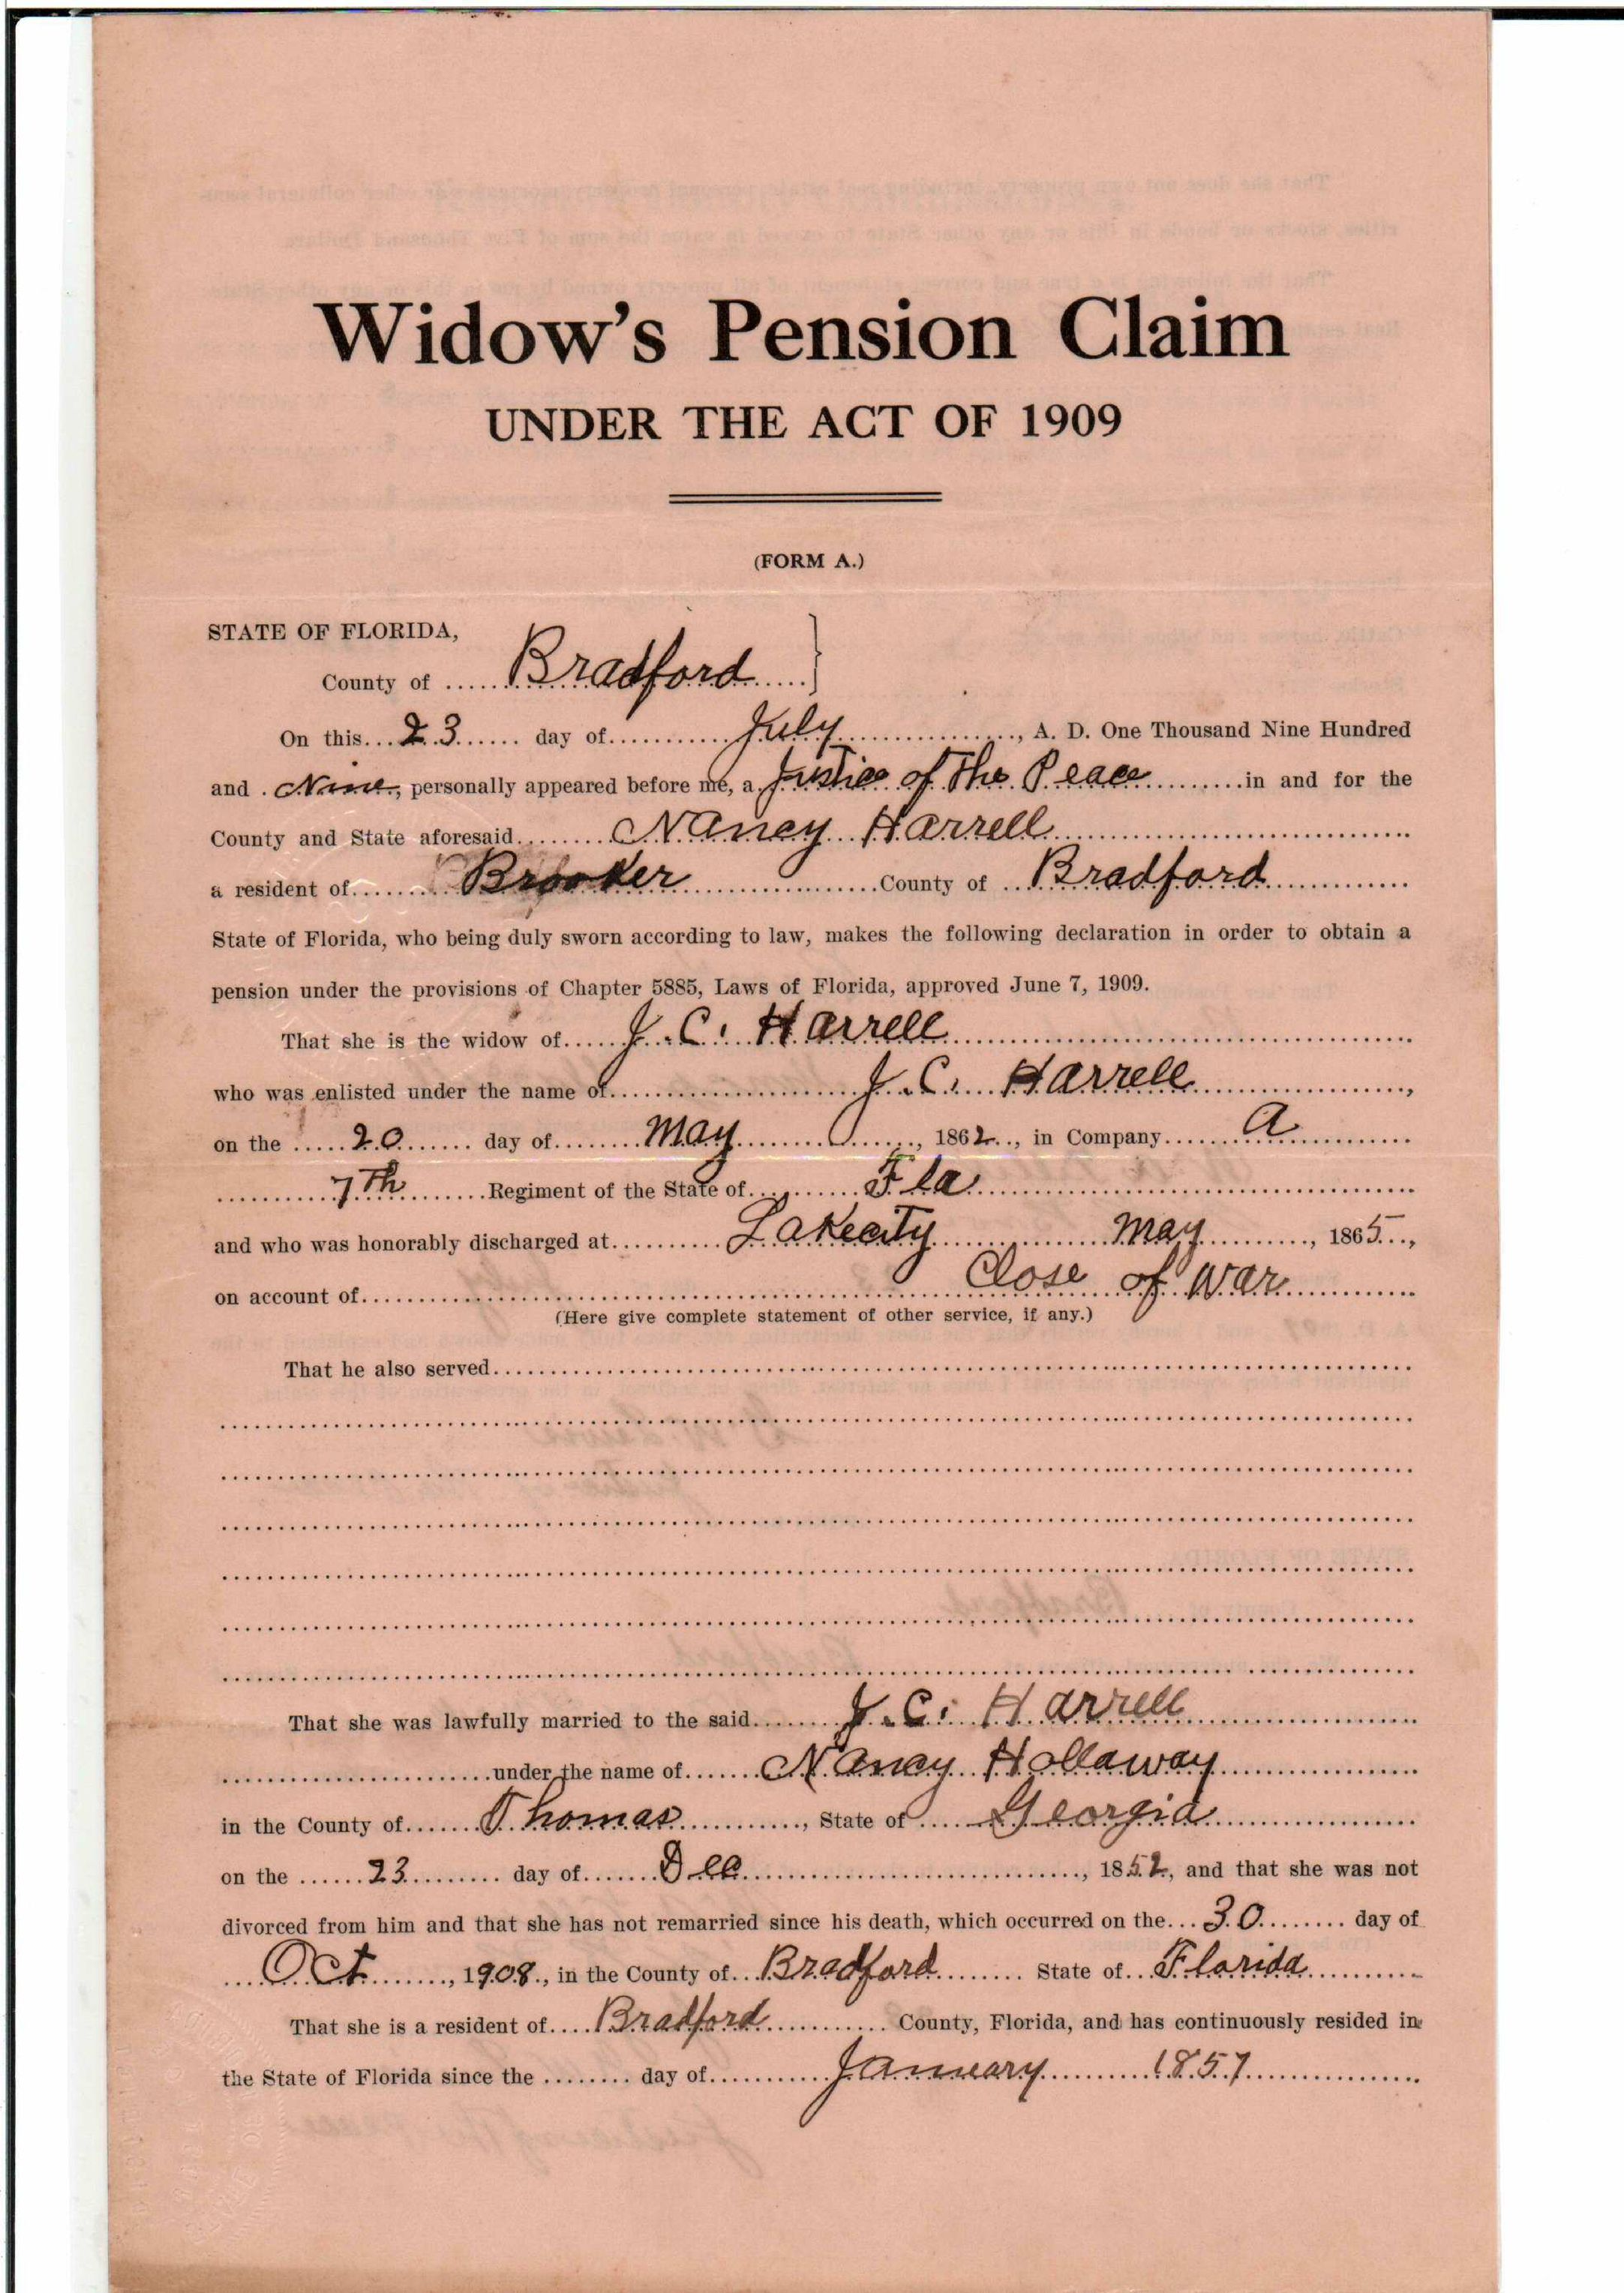 Widow's Pension Claim
UNDER THE ACT OF 1909
(FORM A.)
STATE OF FLORIDA,
County of Bradford
On this 23 day of July, A. D. One Thousand Nine Hundred
and Nine, personally appeared before me, a Justice of the Peace in and for the
County and State aforesaid Nancy Harrell
a resident of Brooker County of Bradford
State of Florida, who being duly sworn according to law, makes the following declaration in order to obtain a
pension under the provisions of Chapter 5885, Laws of Florida, approved June 7, 1909.
That she is the widow of J. C. Harrell
who was enlisted under the name of J. C. Harrell,
on the 20 day of May, 1862, in Company A
7th Regiment of the State of Fla
and who was honorably discharged at Lakecity May, 1865,
on account of Close of War
(Here give complete statement of other service, if any.)
That he also served
That she was lawfully married to the said J. C. Harrell
under the name of Nancy Hollaway
in the County of Thomas, State of Georgia
on the 23 day of Dec, 1852, and that she was not
divorced from him and that she has not remarried since his death, which occurred on the 30 day of
Oct, 1908, in the County of Bradford State of Florida
That she is a resident of Bradford County, Florida, and has continuously resided in
the State of Florida since the day of January 1857